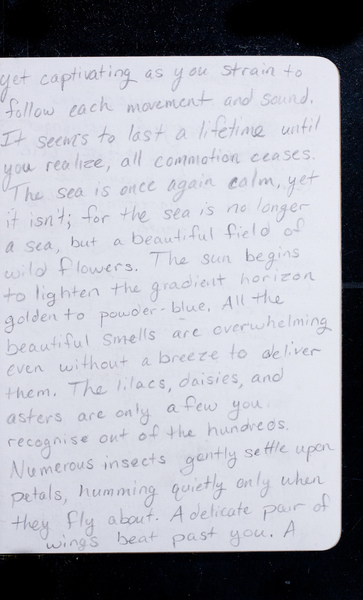 yet captivating as you strain to
follow each movement and sound.
It seems to last a lifetime until
you realize, all commotion ceases.
The sea is once again calm, yet
it isn't; for the sea is no longer
a sea, but a beautiful field of
wild flowers. The sun begins
to lighten the gradient horizon
golden to powder-blue. All the
beautiful smells are overwhelming
even without a breeze to deliver
them. The lilacs, daisies, and
asters are only a few you
recognise out of the hundreds.
Numerous insects gently settle upon
petals, humming quietly only when
they fly about. A delicate pair of
wings beat past you. A